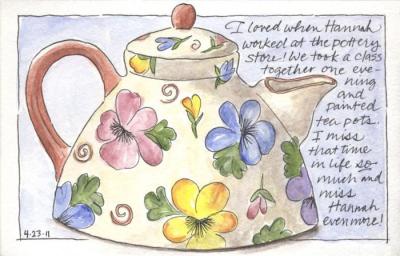 I loved when Hannah
worked at the pottery
store! We took a class
together one eve-
ning
and
painted
tea pots.
I miss
that time
in life so
much and
miss
Hannah
even more!
4-23-11